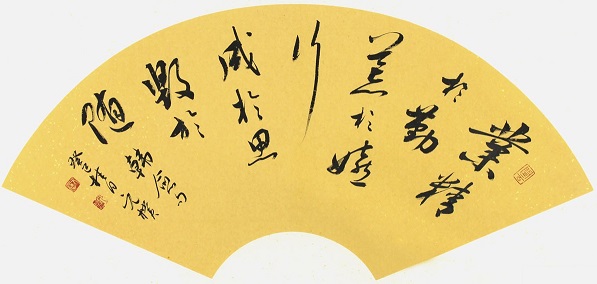 業精
於勤
荒於嬉
行
成於思
毀於
隨 韓愈句
癸巳桂月